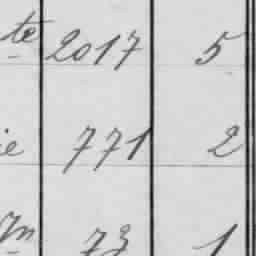 te 2017 5
ie 771 2
m 73 1